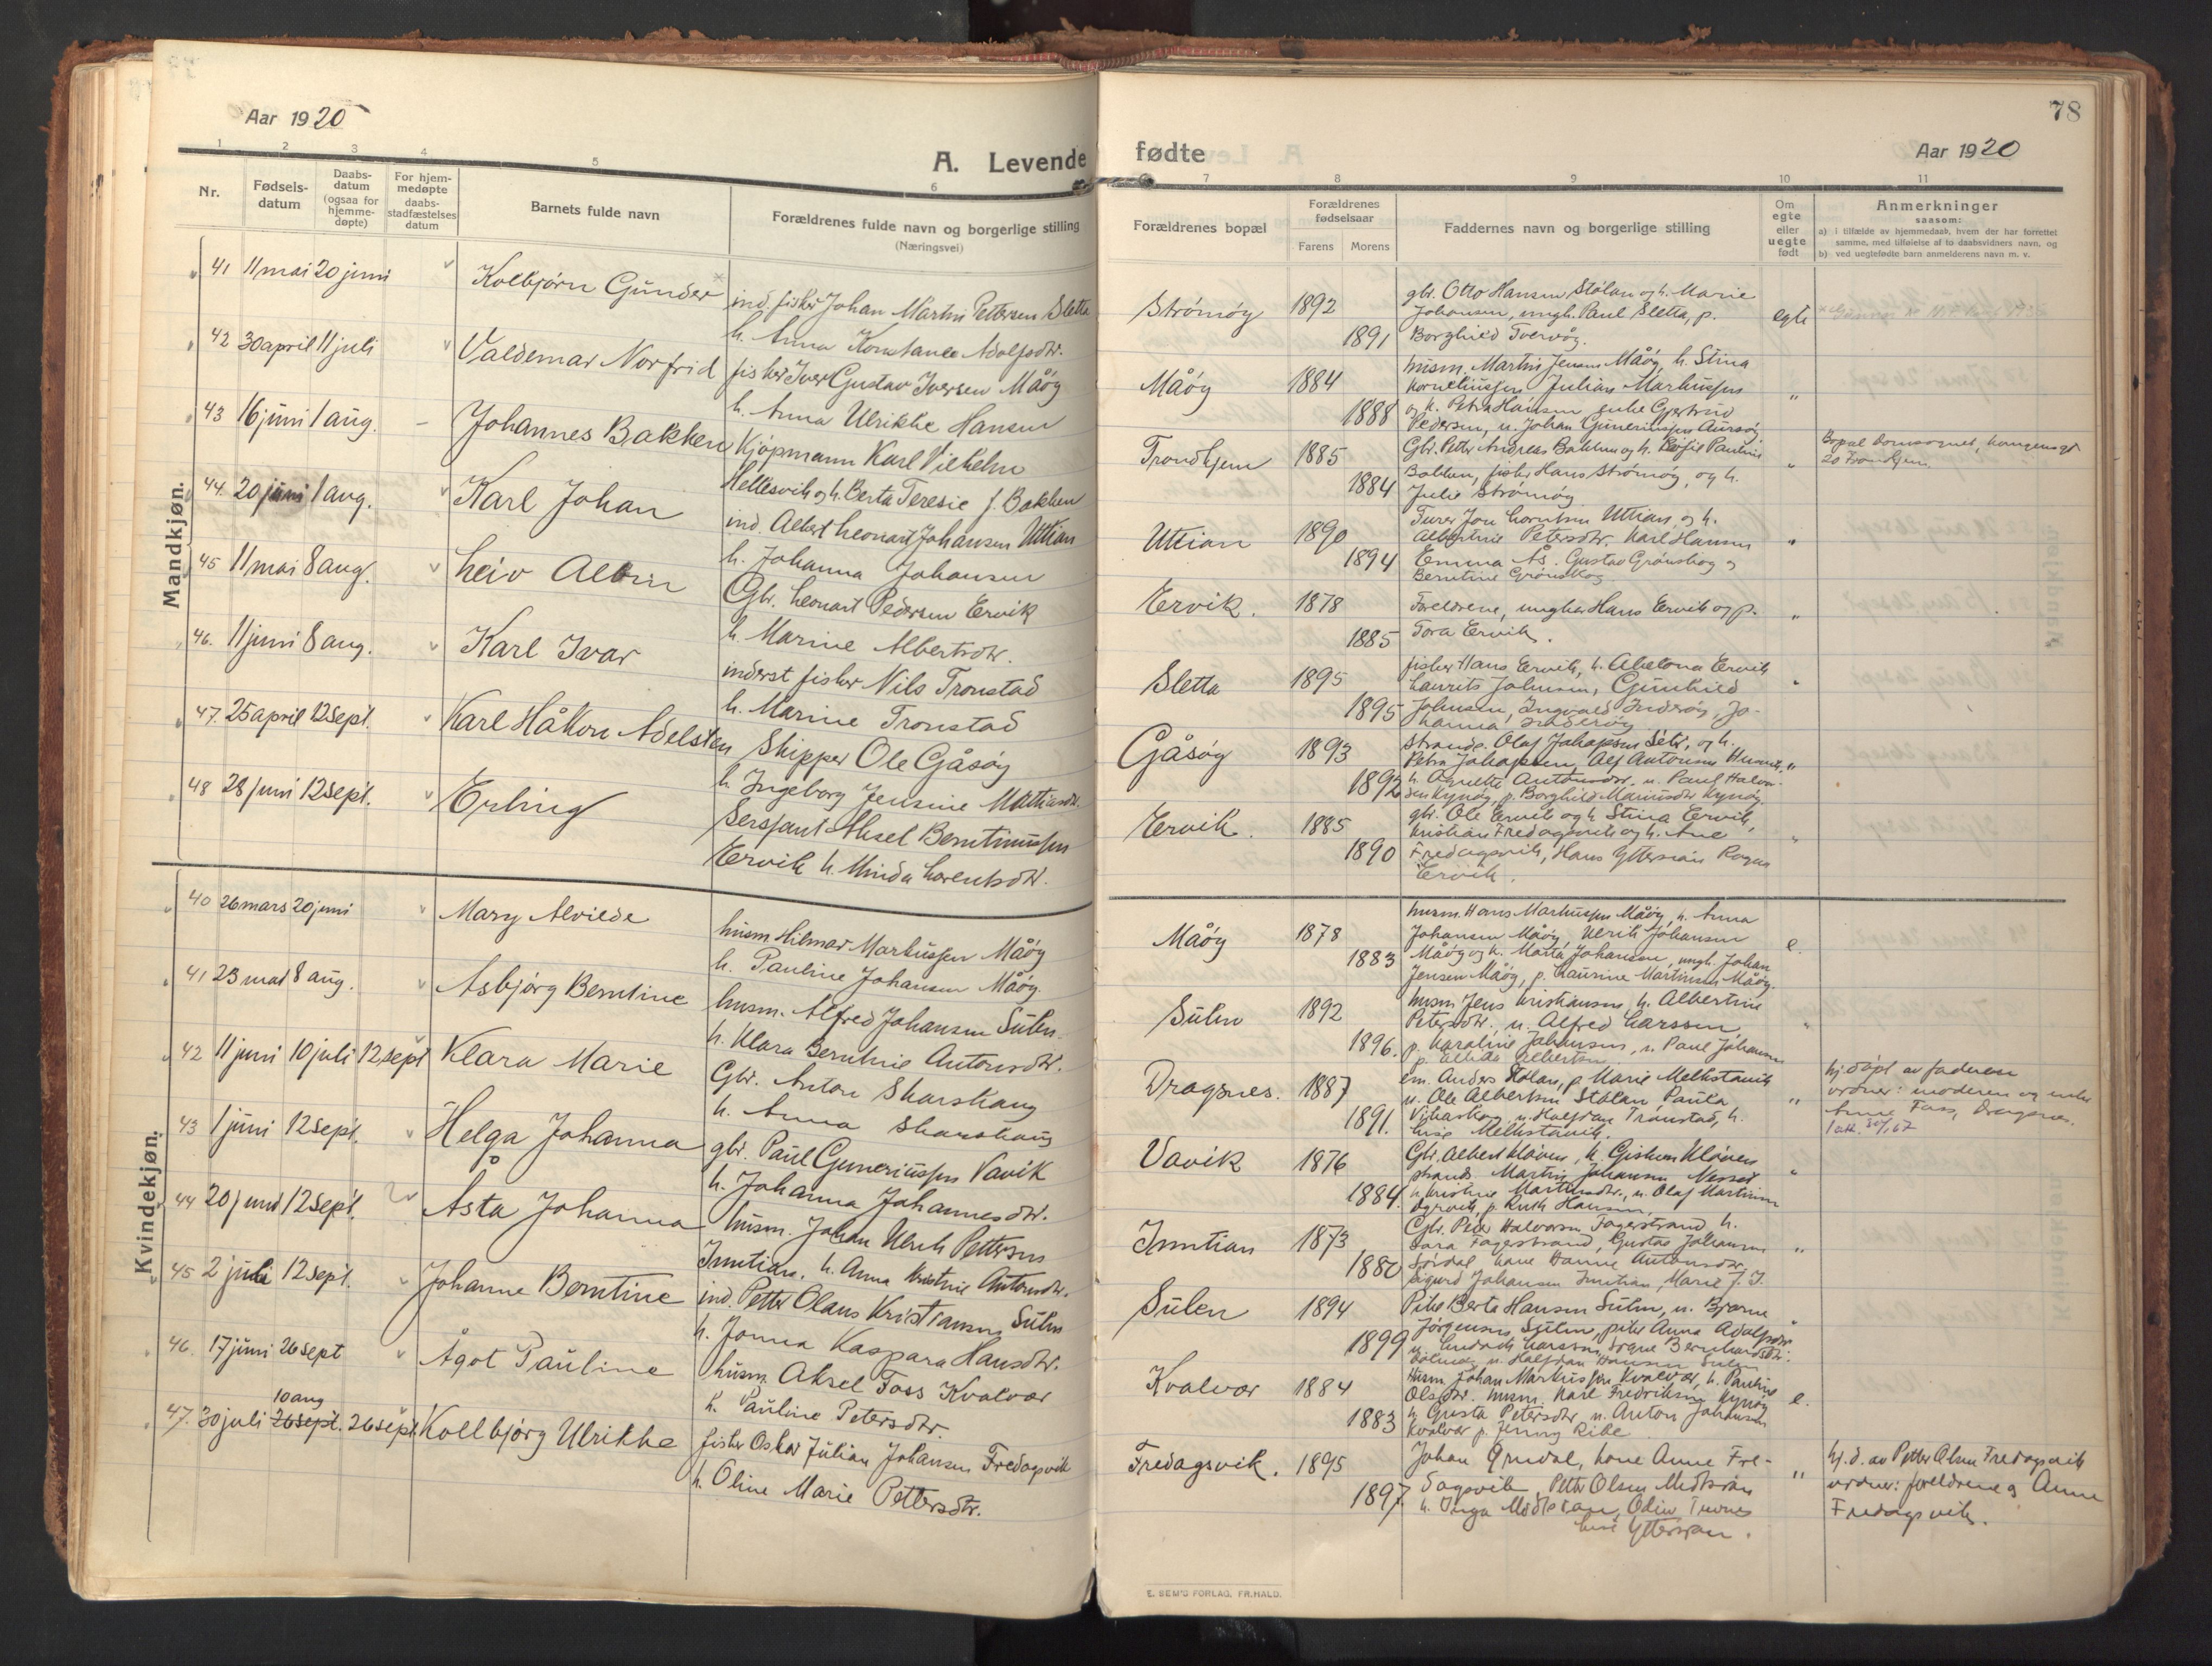 Aar 1920
A. Levende
1 2 3 4 5 6
Nr.
Fødsels-
datum
Daabs-
datum
(ogsaa for
hjemme-
døpte)
For hjem-
medøpte
daabs-
stadfæstelses
datum
Barnets fulde navn
Forældrenes fulde navn og borgerlige stilling
(Næringsvei)
Mandkjøn.
41 11 mai 20 juni Kolbjørn Gunder
ind. fisker Johan Martin Pettersen Sletta
h. Anna Konstanse Adolfsdtr.
42 30 april 11 juli Valdemar Norfrid
fisker Iver Gustav Iversen Måøy
h. Anna Ulrikke Hansen
43 16 juni 1 aug. Johannes Bakken
Kjøpmann Karl Vilhelm
Hellesvik og h. Berta Teresie f. Bakken
44. 20 juni 1 aug. Karl Johan
ind. Albert Leonart Johansen Uttian
h. Johanna Johansen
45 11 mai 8 aug. Leiv Albin
Gbr. Leonart Pedersen Ervik
h. Marine Albertsdtr.
46. 11 juni 8 aug. Karl Ivar
inderst fisker Nils Tronstad
h. Marine Tronstad
47. 25 april 12 sept. Karl Håkon Adelsten
Skipper Ole Gåsøy
h. Ingeborg Jensine Mattiasdtr.
48 28 juni 12 sept. Erling
Sersjant Aksel Berntinussen
Ervik h. Minda Lorentsdtr.
Kvindekjøn.
40 26 mars 20 juni Mary Alvilde
husm. Hilmar Markussen Måøy
h. Pauline Johansen Måøy
41 23 mai 8 aug. Asbjørg Berntine
husm. Alfred Johansen Sulen
h. Klara Berntine Antonsdtr.
42 11 juni 10 juli 12 sept Klara Marie
Gbr. Anton Skarskaug
h. Anna Skarskaug
43 1 juni 12 sept. Helga Johanna
gbr. Paul Guneriussen Vavik
h. Johanna Johannesdtr.
44 20 juni 12 sept. Åsta Johanna
husm. Johan Ulrik Pettersen
Inntian, h. Anna Kristine Antonsdtr.
45 2 juli 12 sept. Johanne Berntine
ind. Petter Olaus Kristiansen Sulen
h. Jonna Kaspara Hansdtr.
46. 17 juni 26 sept Ågot Pauline
husm. Aksel Foss Kvalvær
h. Pauline Petersdtr.
10 aug
47. 30 juli 26 sept. 26 sept. Kollbjørg Ulrikke
fisker Oskar Julian Johansen Fredagsvik
h. Oline Marie Pettersdtr.
78
fødte
Aar 1920
7 8 9 10 11
Forældrenes bopæl
Forældrenes
fødselsaar
Farens Morens
Faddernes navn og borgerlige stilling
Om
egte
eller
uegte
født
Anmerkninger
saasom:
a) i tilfælde av hjemmedaab, hvem der har forrettet
samme, med tilføielse af to daabsvidners navn, og
b) ved uegtefødte barn anmelderens navn m. v.
Strømøy 1892
1891
gbr. Otto Hansen Stølan og h. Marie
Johansen, ungk. Paul Sletta, p.
Borghild Tverrøy.
egte
Måøy 1884
1888
husm. Martin Jensen Måøy, h. Stina
Korneliussen Julian Markussen
og h. Petra Hansen, enke Gjertrud
Pedersen, u. Johan Guneriussen Aursøy
"
Trondhjem 1885
1884
Gbr. Petter Andreas Bakken og h. Pauline
Bakken, fisker Hans Strømøy, og h.
Julie Strømøy
"
Bopæl Domsognet,
20 Trondhjem.
Uttian 1890
1894
Jon Lorntsen Uttian og h.
Albertine Petersdtr. Karl Hansen
Emma Ås. Gustav Grønskog og
Berntine Grønskog
"
Ervik. 1878
1885
Foreldrene, ungkar Hans Ervik og p.
Tora Ervik.
"
Sletta 1895
1895
fisker Hans Ervik, h. Abelona Ervik
Laurits Johnsen, Gunhild
Johnsen, Ingvald Inderøy, Jo-
hanna Inderøy
"
Gåsøy 1893
1892
strands. Olaf Johansen Setr, og h.
Petra Johansen, Alf Antonsen
h. Agnette Antonsdtr. u. Paul Halvor-
sen Kynøy, p. Borghild Mariusdtr Kynøy.
"
Ervik. 1885
1890
gbr. Ole Ervik og h. Stina Ervik,
Kristian Fredagsvik og h. Ane
Fredagsvik, Hans Yttersian Ragna
Ervik.
"
Måøy 1878
1883
husm. Hans Markussen Måøy, h. Anna
Johansen Måøy, Ulrik Johansen
Måøy og h. Marta Johansen, ungk. Johan
Jensen Måøy, p. Laurine Martinsen Måøy.
e.
Sulen 1892
1896.
husm. Jens Kristiansen h. Albertine
Petersdtr., u. Alfred Larssen
p. Karoline Johansen, u. Paul Johansen
p. Albertsen
"
Dragsnes. 1887
1891.
em. Anders Stølan, p. Marie Melkstavik
u. Ole Albertsen Stølan Paula
u. Halfdan Tronstad, h.
Lise Melkstavik.
"
hj.døpt av faderen
vidner: moderen og enke
Anne Foss, Dragsnes.
Vavik 1876
1884.
Gbr. Albert Kløven, h. Gisken Kløven
strands. Martin Johansen Nesset
h. Kristine Martinsdtr., u. Olaf Martinsen
p. Ruth Hansen,
"
Inntian 1873
1880
Gbr. Peder Halvorsen Fagerstrand, h.
Sara Fagerstrand, Gustav Johansen
Sørdal, kone Hanne Antonsdtr,
Sigurd Johansen Inntian, Marie J. I.
"
Sulen 1894
1899
Pike Berta Hansen Sulen, u. Bjarne
Jørgensen Sulen, pike Anna Adolfsdtr
u. Larssen, Bernhardsdtr.
u. Halfdan Hansen Sulen
"
Kvalvær 1884
1883
Husm. Johan Markussen Kvalvær, h. Pauline
Olsdtr. husm. Karl Fredriksen Kynøy
h. Gusta Petersdtr u. Anton Johansen
Kvalvær p. Jenny Ribe
e.
Fredagsvik. 1895
1897.
Johan Grindal, kone Anne Fre-
dagsvik, Petter Olsen Midtsian
h. Inga Midtsian, Odin
Yttersian.
"
hj.d. av Petter Olsen Fredagsvik
vidner: foreldrene og Anne
Fredagsvik.
E. SEM'S FORLAG, FR.HALD.